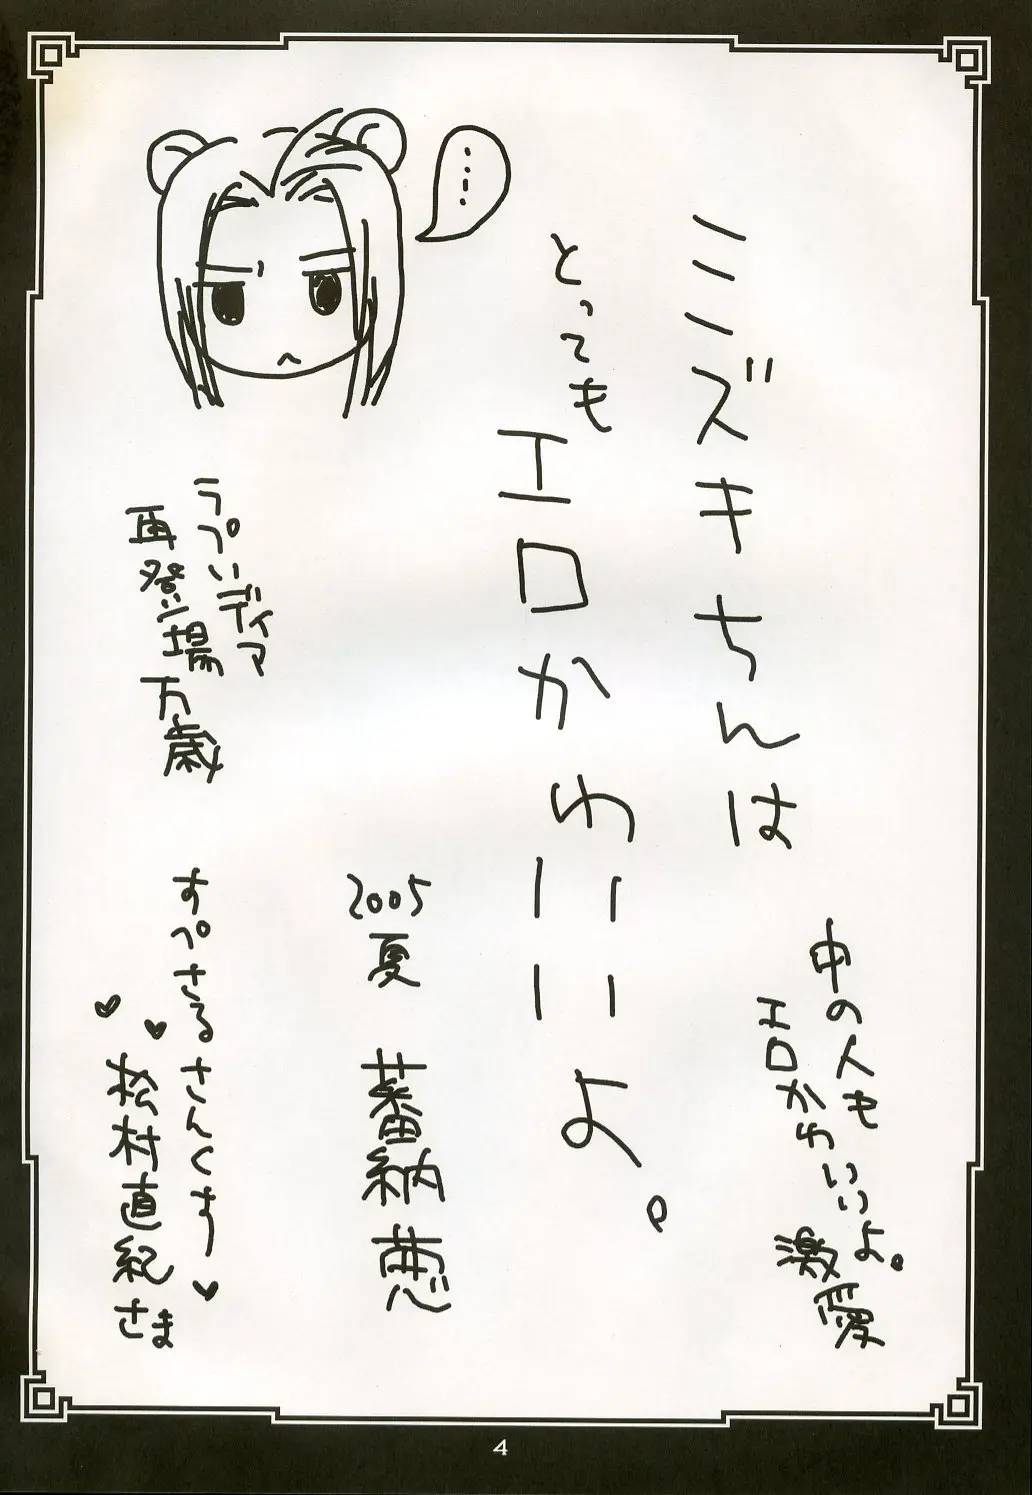 ……
ミミズキちんは
とっても
エロかわいいよ。
中の人も
エロかわいいよ。
激愛
2005
夏
蕃納葱
ラブいディマ
再登場万歳
すぺさるさんくす♥
♥♥松村直紀さま
4